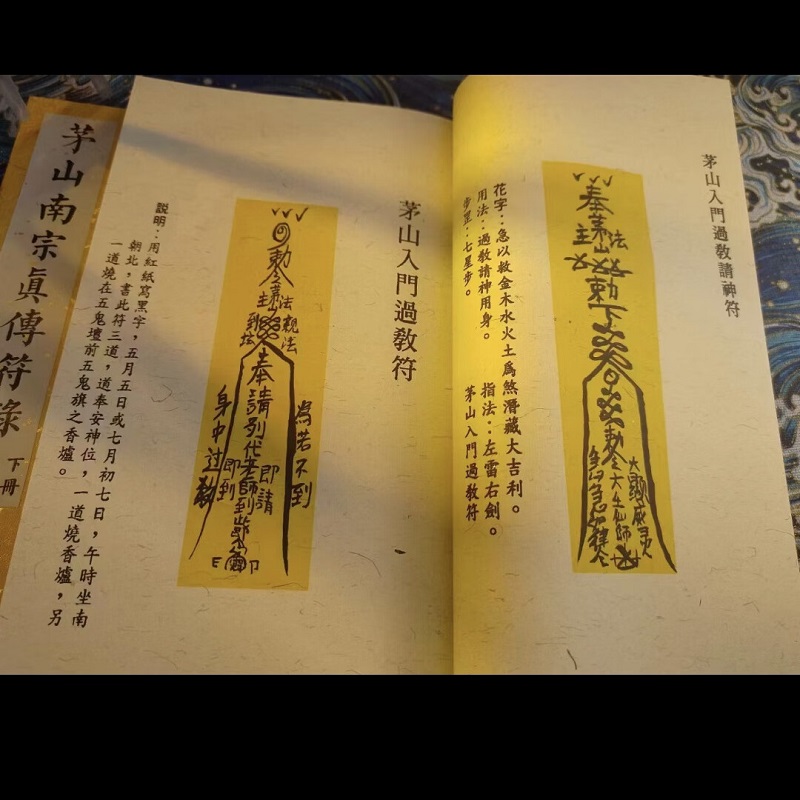 茅山入門過教請神符
奉茅山法主
勅下
勅令大士仙師
大顯威灵
花字：急以救金木水火土為煞潛藏大吉利。
用法：過教請神用身。　指法：左雷右劍。
步罡：七星步。　茅山入門過教符
茅山入門過教符
勅令茅山
法主親法到坛
奉請列代老師到此
即請即到
為若不到
身中过教
説明：用紅紙寫黑字，五月五日或七月初七日，午時坐南
朝北，書此符三道，一道奉安神位，一道燒香爐，另
一道燒在五鬼壇前五鬼旗之香爐。
茅山南宗真傳符籙
下冊